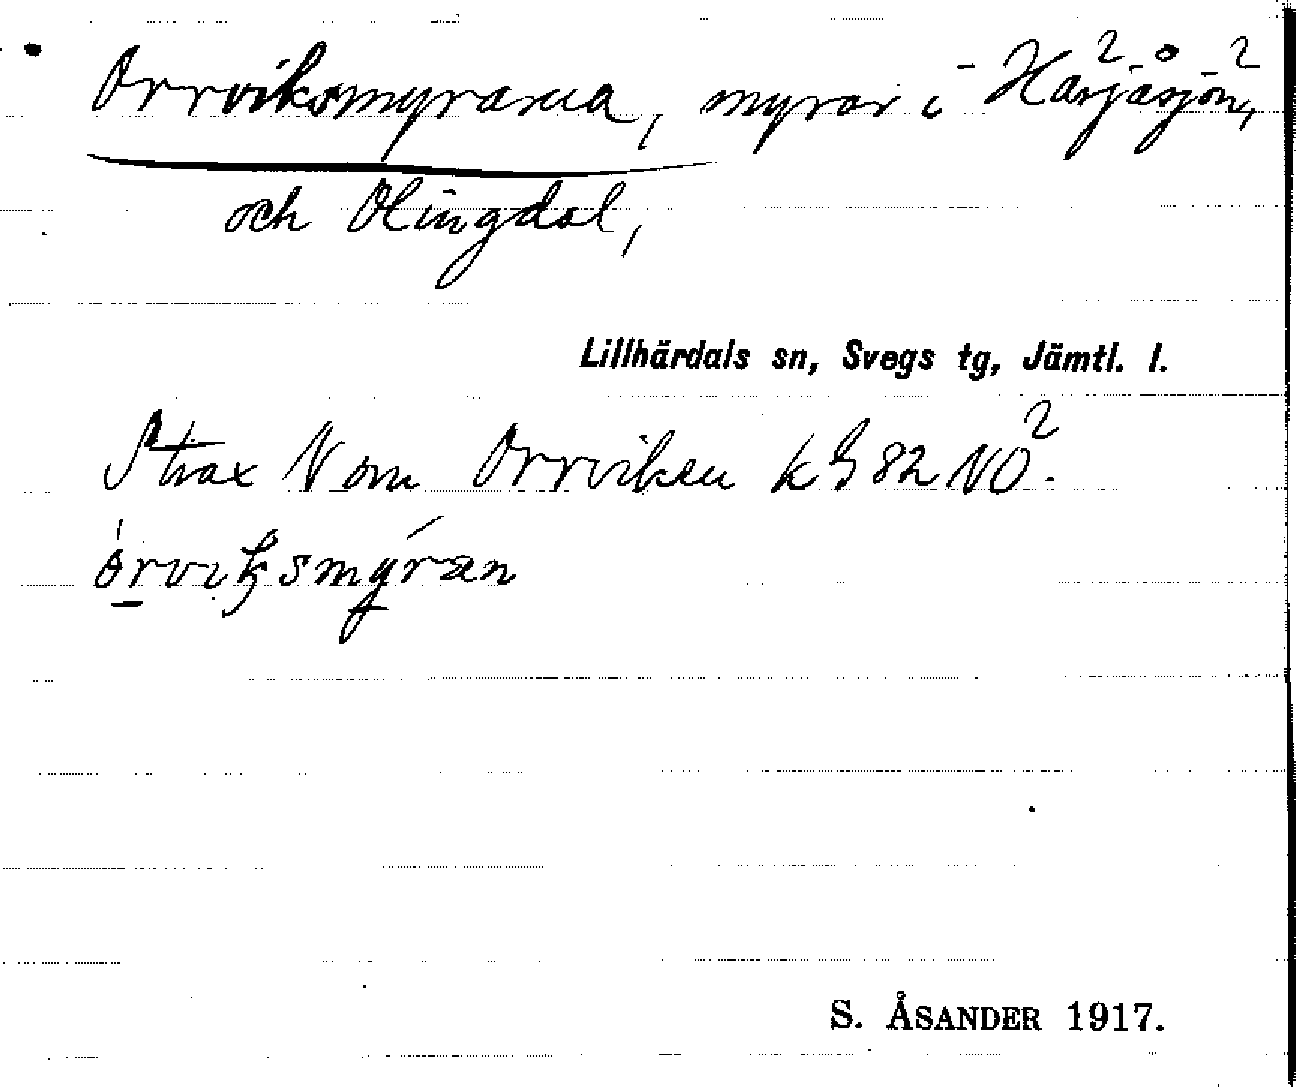 Orrviksmyrarna, myrar i Härjåsjön,
och Olingdal,
Lillhärdals sn, Svegs tg, Jämtl. l.
Strax N om Orrviken kb 82 NO.
S. ÅSANDER 1917.